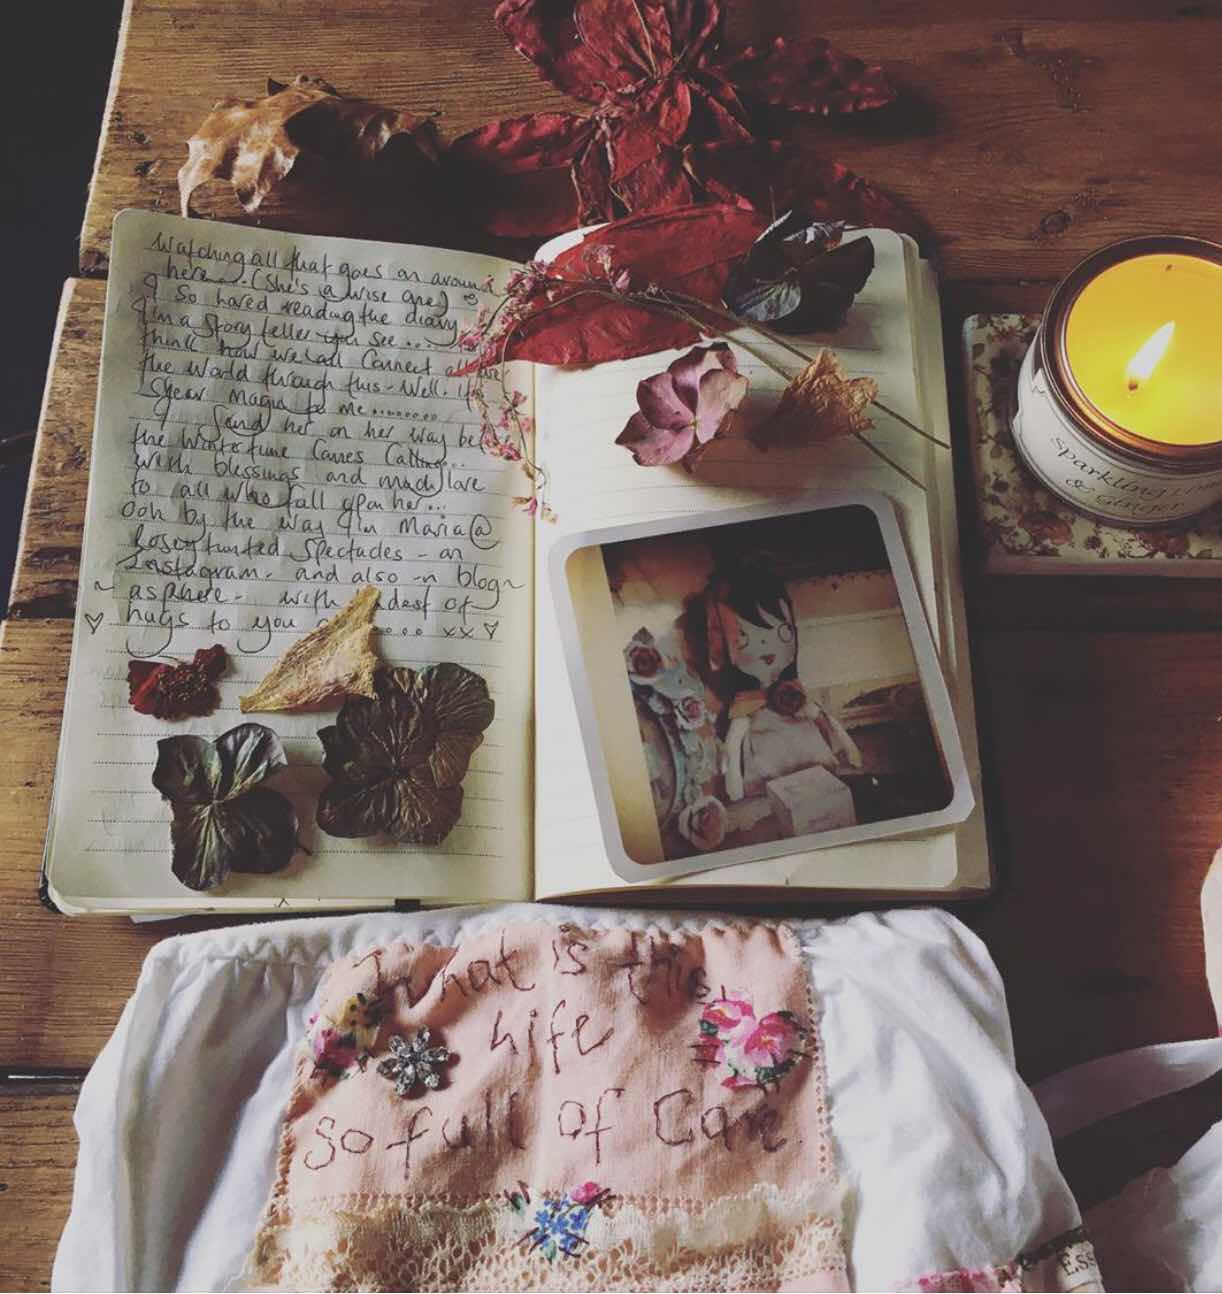 Watching all that goes on around
here.... (She's a wise one)
I so loved reading the diary
I'm a story teller you see ...
think how we all connect
the world through this - Well. its
shear magic to me ........
I send her on her way
the Wintertime Comes Calling...
with blessings and much love
to all who fall upon her...
Ooh by the way I'm Maria @
Roseytinted Spectacles - on
Instagram. and also in blog~
~ asphere - with of
hugs to you xx
What is this
Life
So full of Care
Sparkling
& Ginger
ESS